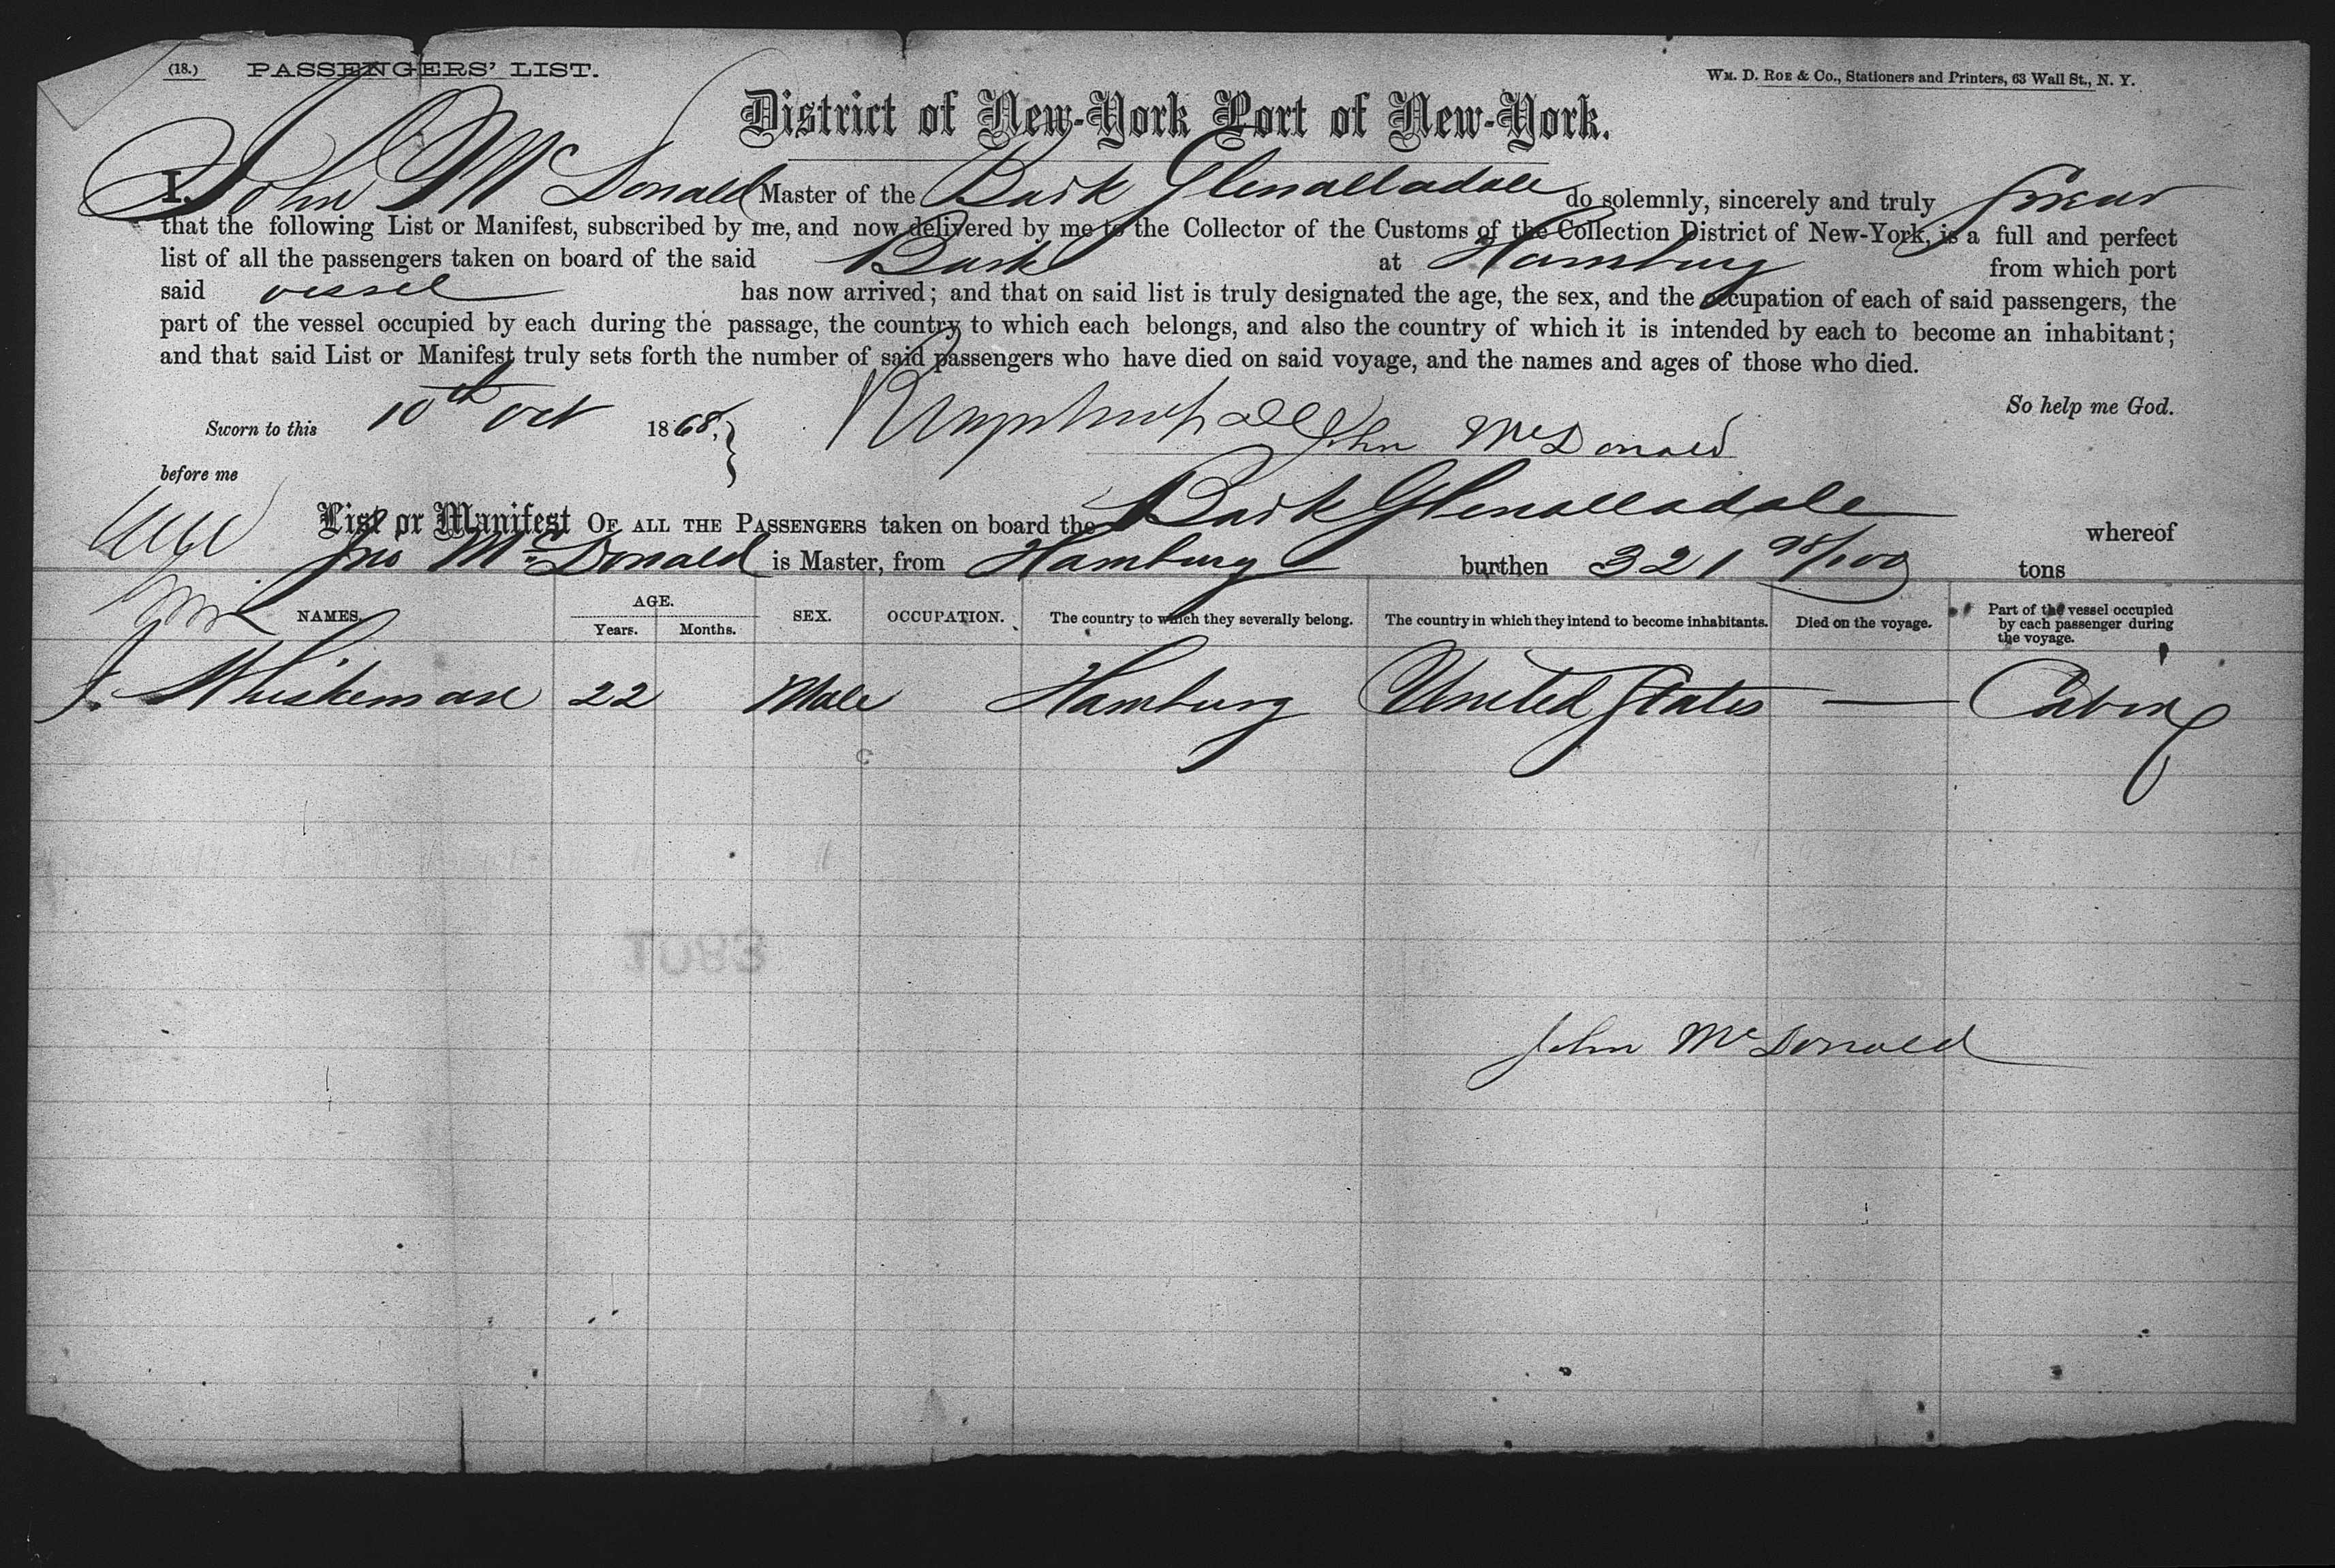 (18.) PASSENGERS' LIST.
WM. D. ROE & Co., Stationers and Printers, 63 Wall St., N. Y.
District of New-York Port of New-York.
I, John McDonald Master of the Bark Glenalladale do solemnly, sincerely and truly swear
that the following List or Manifest, subscribed by me, and now delivered by me to the Collector of the Customs of the Collection District of New-York, is a full and perfect
list of all the passengers taken on board of the said Bark at Hamburg from which port
said vessel has now arrived; and that on said list is truly designated the age, the sex, and the occupation of each of said passengers, the
part of the vessel occupied by each during the passage, the country to which each belongs, and also the country of which it is intended by each to become an inhabitant;
and that said List or Manifest truly sets forth the number of said passengers who have died on said voyage, and the names and ages of those who died.
So help me God.
Sworn to this 10th Oct 1868, John McDonald
before me
List or Manifest OF ALL THE PASSENGERS taken on board the Bark Glenalladale whereof
Jno McDonald is Master, from Hamburg burthen 321 98/100 tons
NAMES. AGE. Years. Months. SEX. OCCUPATION. The country to which they severally belong. The country in which they intend to become inhabitants. Died on the voyage. Part of the vessel occupied by each passenger during the voyage.
J. Whiskeman 22 Male Hamburg United States — Cabin
1083
John McDonald